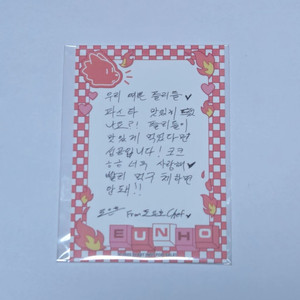 우리 예쁜 플리들
파스타 맛있게
나요? 플리들이
맛있게 먹었다면
성공입니다! 포크
너무 사랑해
빨리 먹구 체하면
안돼!!
From 도은호 Chef
EUNHO